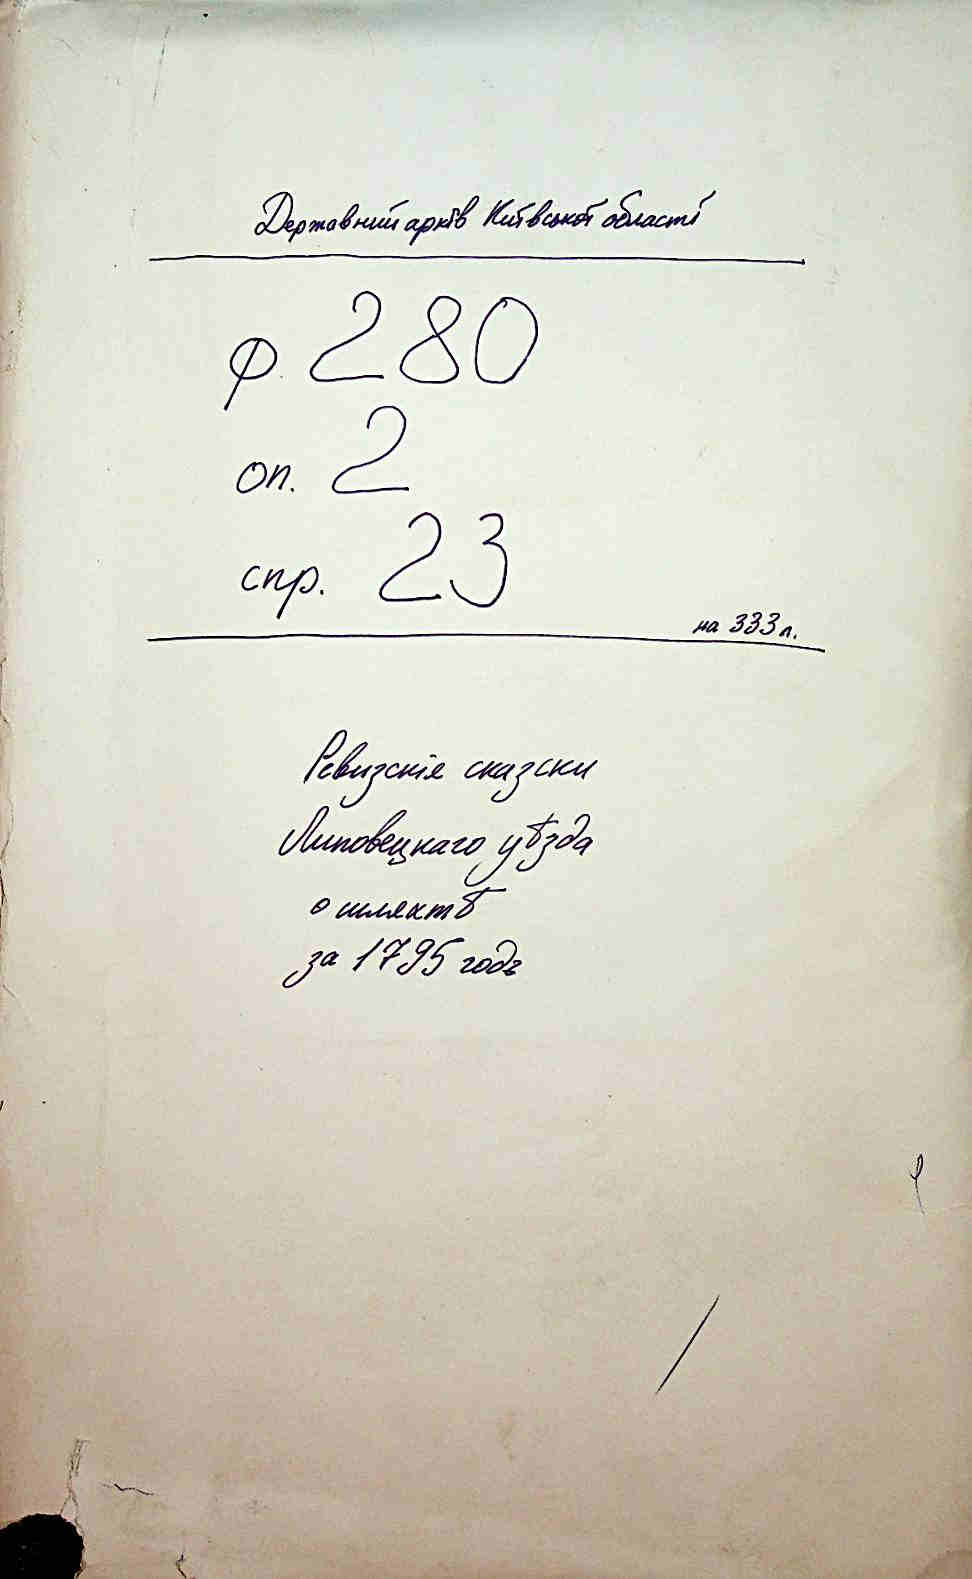 Державний архів Київської області
ф. 280
оп. 2
спр. 23
на 333 л.
Ревизскія сказски
Липовецкаго уѣзда
о шляхтѣ
за 1795 годъ